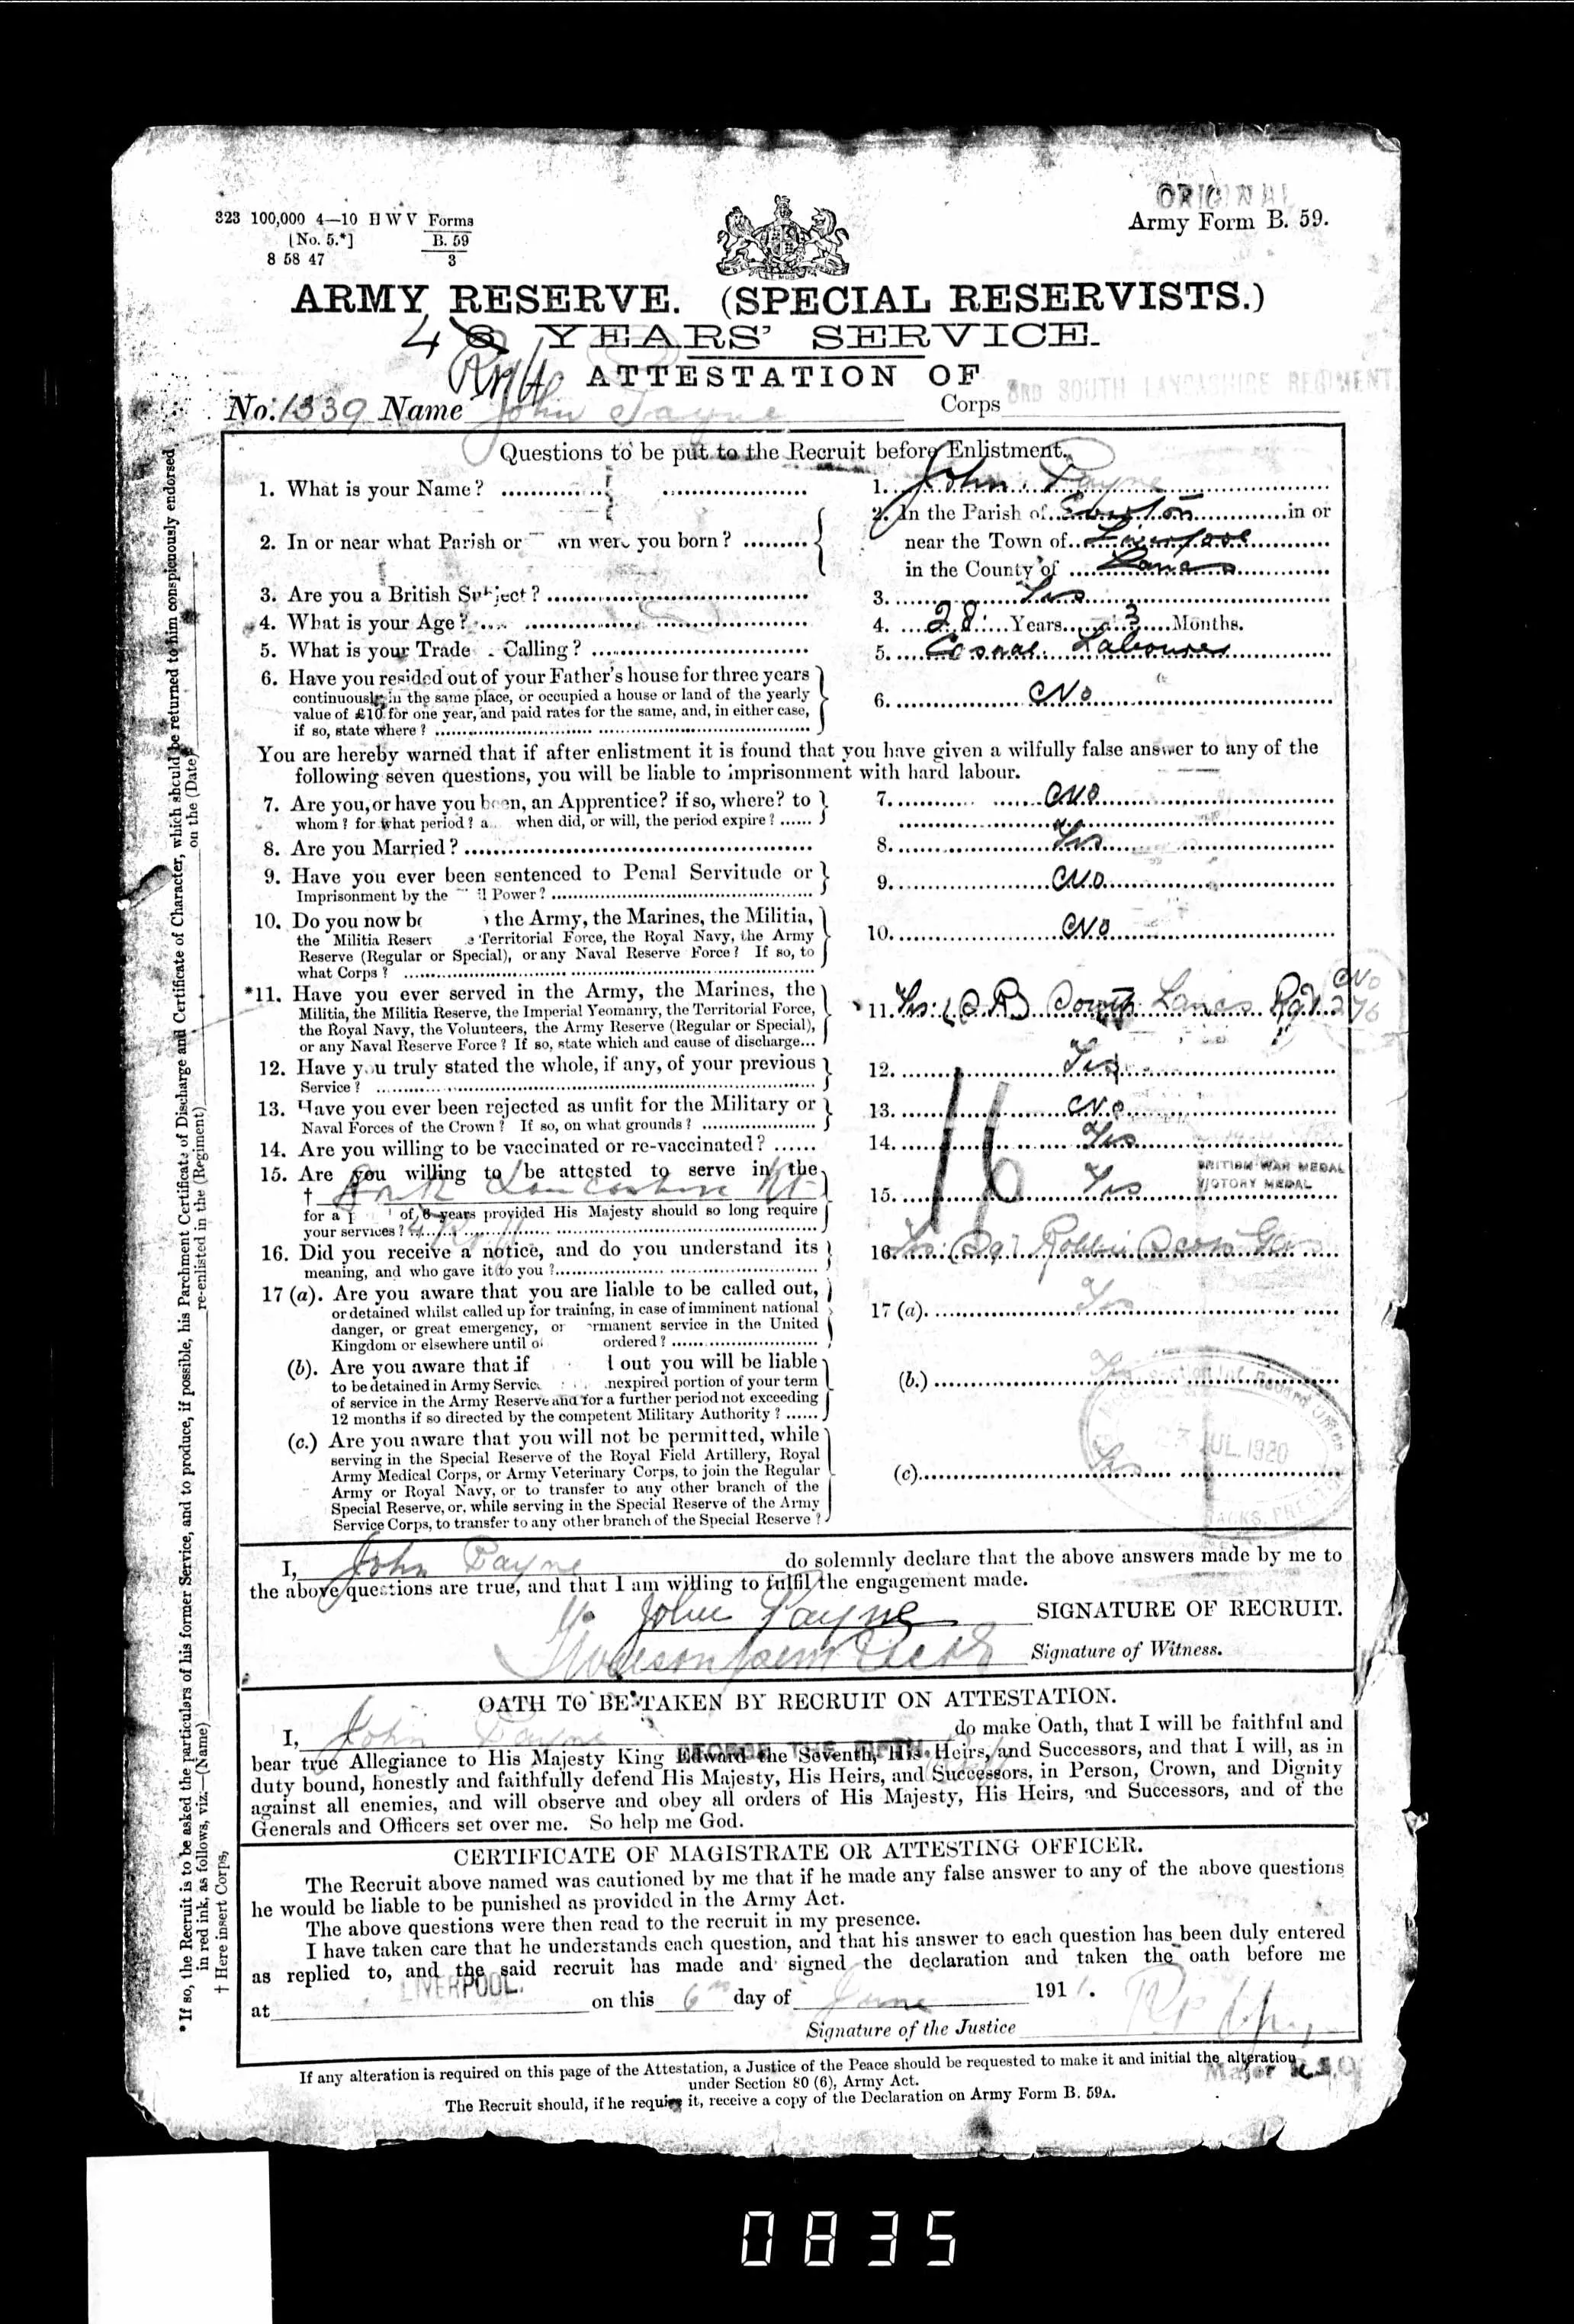 ORIGINAL
323 100,000 4—10 H W V Forms
[No. 5.*] B. 59
8 58 47 3
Army Form B. 59.
ARMY RESERVE. (SPECIAL RESERVISTS.)
4 6 YEARS' SERVICE.
ATTESTATION OF
No. 1339 Name John Payne Corps 3RD SOUTH LANCASHIRE REGIMENT.
Questions to be put to the Recruit before Enlistment.
1. What is your Name? 1. John Payne
2. In the Parish of Everton in or
2. In or near what Parish or wn were you born? near the Town of Liverpool
in the County of Lancs
3. Are you a British Subject? 3. Yes
4. What is your Age? 4. 28 Years 3 Months.
5. What is your Trade Calling? 5. Casual Labourer
6. Have you resided out of your Father's house for three years
continuously in the same place, or occupied a house or land of the yearly 6. No
value of £10 for one year, and paid rates for the same, and, in either case,
if so, state where?
You are hereby warned that if after enlistment it is found that you have given a wilfully false answer to any of the
following seven questions, you will be liable to imprisonment with hard labour.
7. Are you, or have you been, an Apprentice? if so, where? to 7. No
whom? for what period? a when did, or will, the period expire?
8. Are you Married? 8. Yes
9. Have you ever been sentenced to Penal Servitude or 9. No
Imprisonment by the il Power?
10. Do you now be the Army, the Marines, the Militia,
the Militia Reserv e Territorial Force, the Royal Navy, the Army 10. No
Reserve (Regular or Special), or any Naval Reserve Force? If so, to
what Corps?
*11. Have you ever served in the Army, the Marines, the No
Militia, the Militia Reserve, the Imperial Yeomanry, the Territorial Force, 11. Yes: (S R) South Lancs Rgt 276
the Royal Navy, the Volunteers, the Army Reserve (Regular or Special),
or any Naval Reserve Force? If so, state which and cause of discharge...
12. Have you truly stated the whole, if any, of your previous 12. Yes
Service?
13. Have you ever been rejected as unfit for the Military or 13. No
Naval Forces of the Crown? If so, on what grounds?
14. Are you willing to be vaccinated or re-vaccinated? 14. Yes
15. Are you willing to be attested to serve in the BRITISH WAR MEDAL
† South Lancashire Rt 15. Yes VICTORY MEDAL
for a of 6 years provided His Majesty should so long require
your services? 4
16. Did you receive a notice, and do you understand its 16. Yes: Sgt
meaning, and who gave it to you?
17 (a). Are you aware that you are liable to be called out, 17 (a). Yes
or detained whilst called up for training, in case of imminent national
danger, or great emergency, or rmanent service in the United
Kingdom or elsewhere until o ordered?
(b). Are you aware that if l out you will be liable (b.) Yes
to be detained in Army Service nexpired portion of your term
of service in the Army Reserve and for a further period not exceeding
12 months if so directed by the competent Military Authority?
(c.) Are you aware that you will not be permitted, while
serving in the Special Reserve of the Royal Field Artillery, Royal JUL 1920
Army Medical Corps, or Army Veterinary Corps, to join the Regular (c) Yes
Army or Royal Navy, or to transfer to any other branch of the
Special Reserve, or, while serving in the Special Reserve of the Army
Service Corps, to transfer to any other branch of the Special Reserve?
I, John Payne do solemnly declare that the above answers made by me to
the above questions are true, and that I am willing to fulfil the engagement made.
John Payne SIGNATURE OF RECRUIT.
Signature of Witness.
OATH TO BE TAKEN BY RECRUIT ON ATTESTATION.
I, John Payne do make Oath, that I will be faithful and
GEORGE THE FIFTH
bear true Allegiance to His Majesty King Edward the Seventh, His Heirs, and Successors, and that I will, as in
duty bound, honestly and faithfully defend His Majesty, His Heirs, and Successors, in Person, Crown, and Dignity
against all enemies, and will observe and obey all orders of His Majesty, His Heirs, and Successors, and of the
Generals and Officers set over me. So help me God.
CERTIFICATE OF MAGISTRATE OR ATTESTING OFFICER.
The Recruit above named was cautioned by me that if he made any false answer to any of the above questions
he would be liable to be punished as provided in the Army Act.
The above questions were then read to the recruit in my presence.
I have taken care that he understands each question, and that his answer to each question has been duly entered
as replied to, and the said recruit has made and signed the declaration and taken the oath before me
at LIVERPOOL. on this 6th day of June 1911.
Signature of the Justice
Major R.O.
If any alteration is required on this page of the Attestation, a Justice of the Peace should be requested to make it and initial the alteration
under Section 80 (6), Army Act.
The Recruit should, if he require it, receive a copy of the Declaration on Army Form B. 59A.
*If so, the Recruit is to be asked the particulars of his former Service, and to produce, if possible, his Parchment Certificate of Discharge and Certificate of Character, which should be returned to him conspicuously endorsed
in red ink, as follows, viz:—(Name) re-enlisted in the (Regiment) on the (Date)
† Here insert Corps,
0835